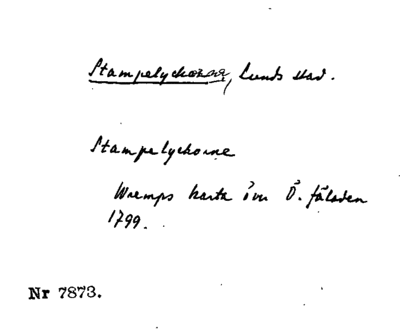 Stampelyckorna, Lunds stad.
Stampelyckorne
Wremps karta över Ö. fäladen
1799.
Nr 7873.